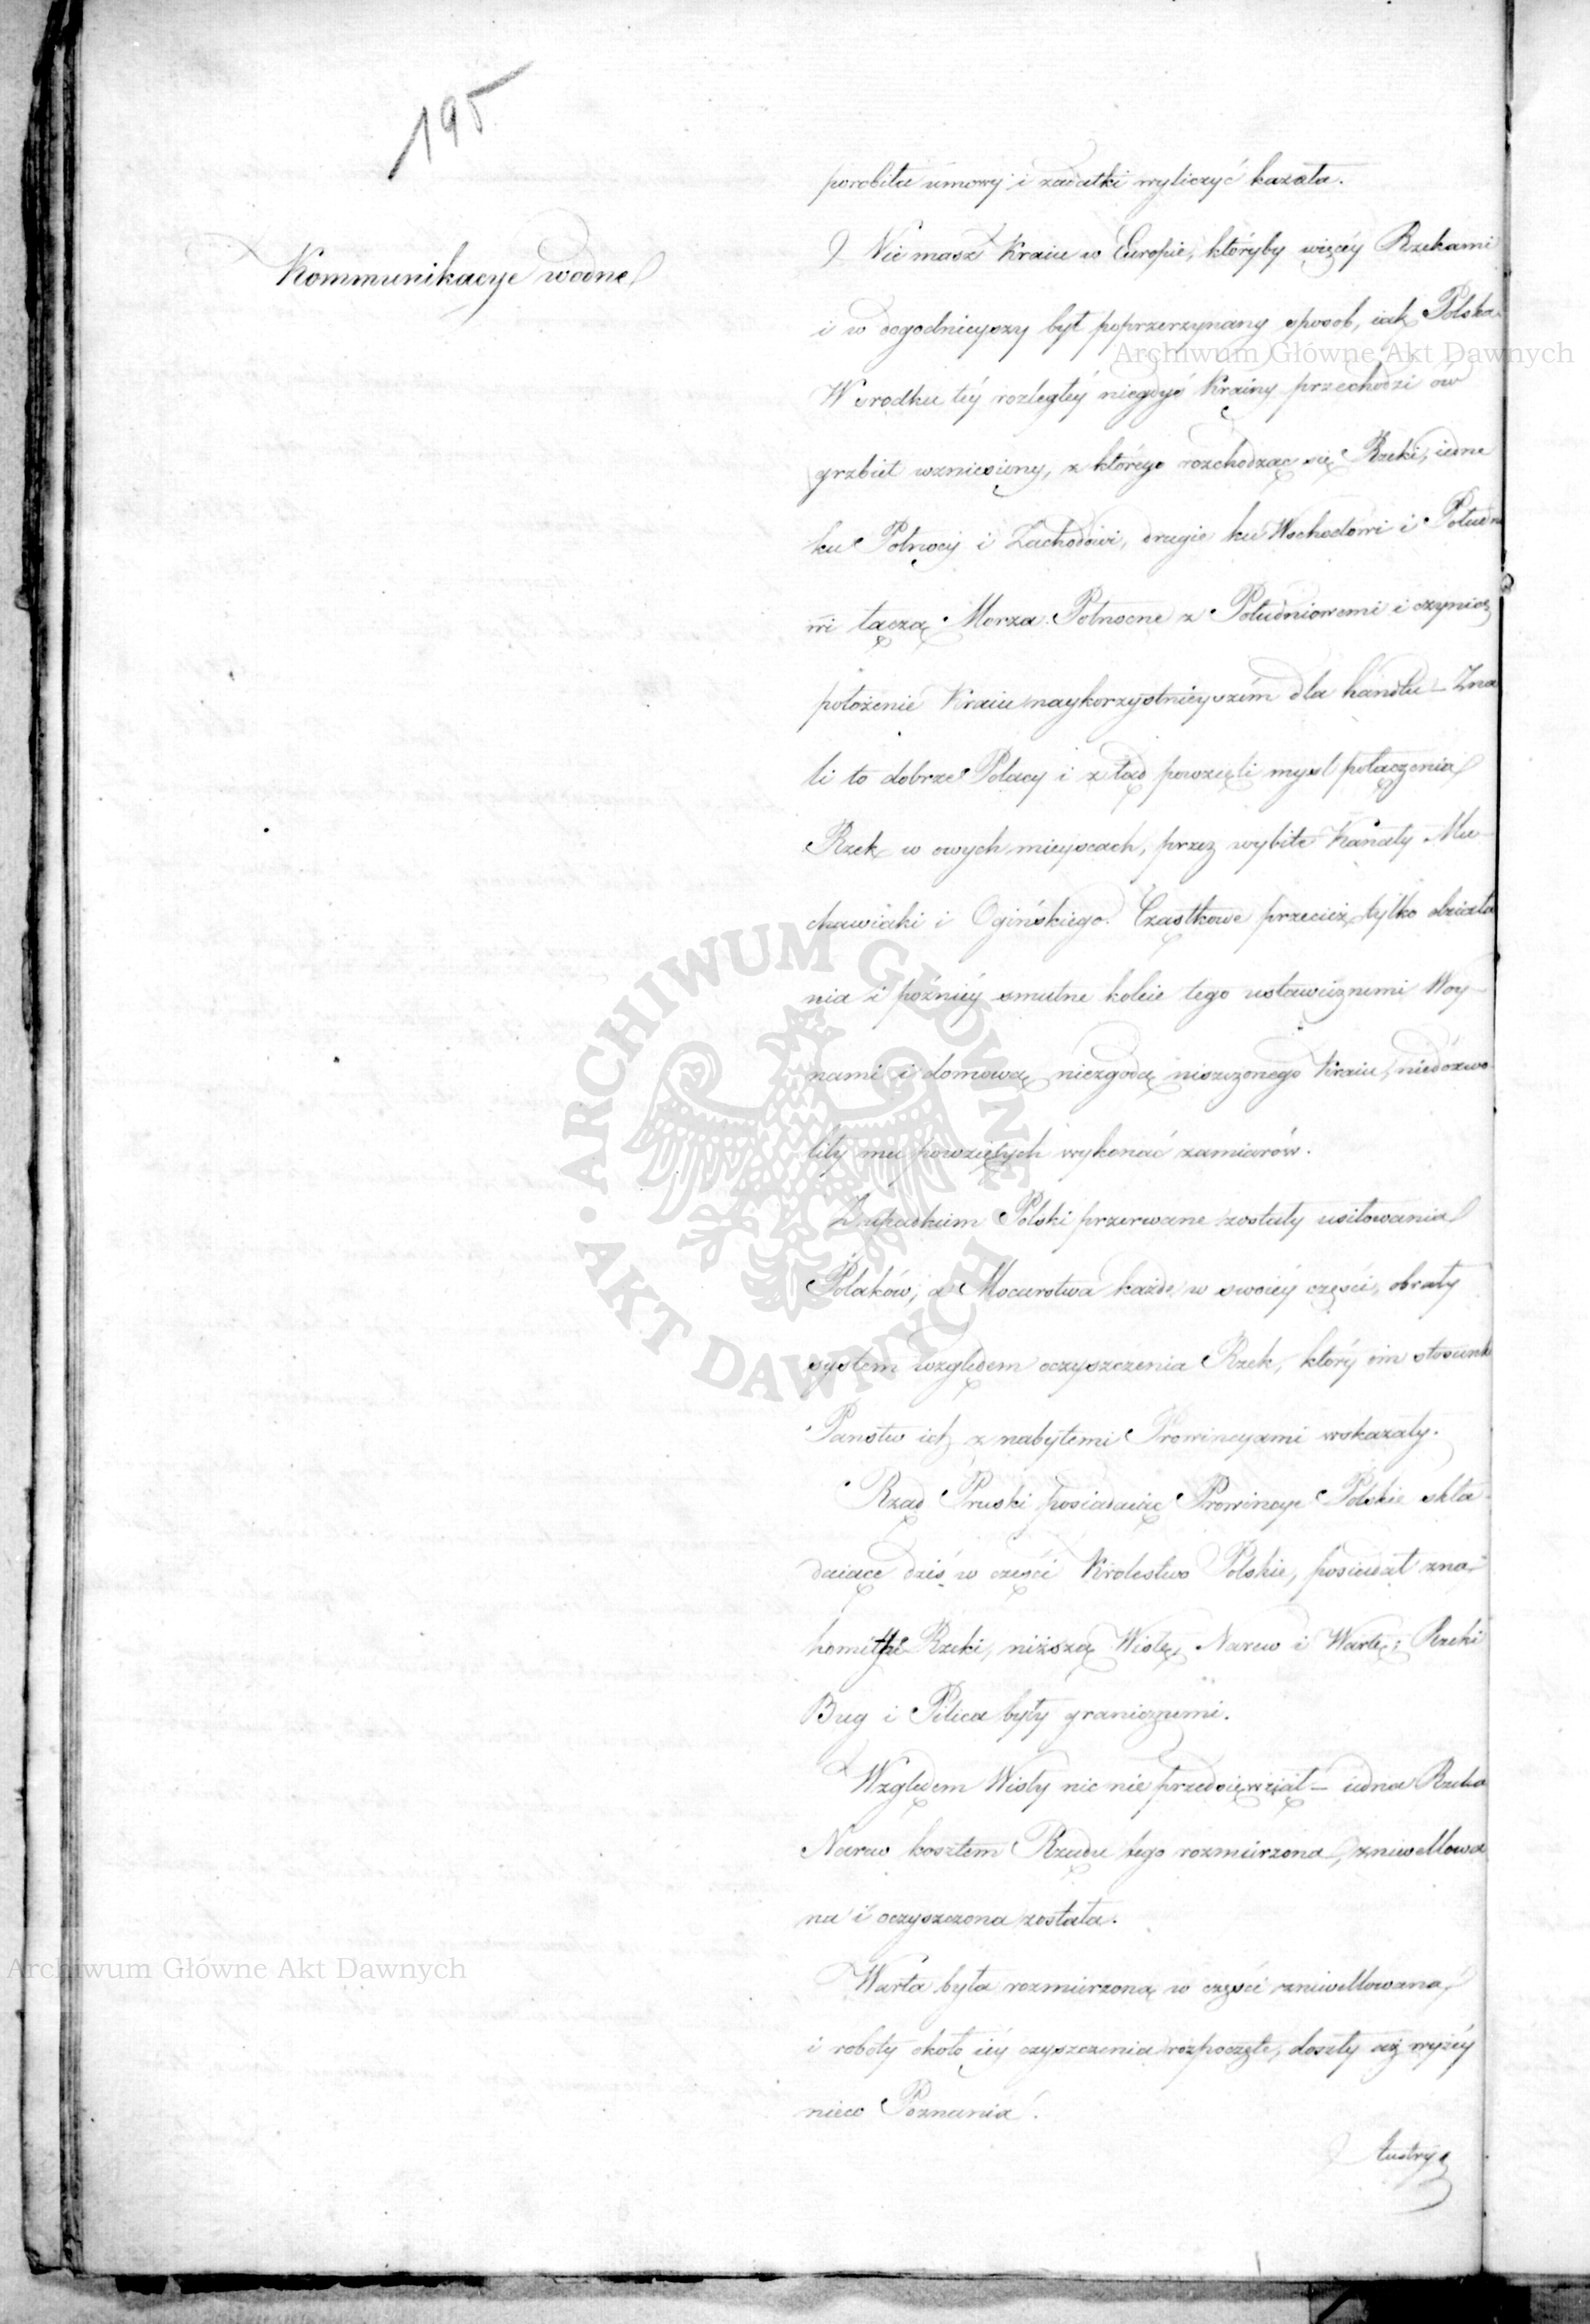 195
Kommunikacye wodne
porobiła umowy i zadatki wyliczyć kazała.
Nie masz Kraiu w Europie, któryby więcéy Rzekami
i w dogodnieyszy był poprzerzynany sposob, iak Polska.
W srodku téy rozległéy niegdyś Krainy przechodzi ów
grzbiet wzniesiony, z którego rozchodząc się Rzeki, iedne
ku Połnocy i Zachodowi, drugie ku Wschodowi i Połudn
wi łączą Morza Połnocne z Południowemi i czynią
położenie Kraiu naykorzystnieyszém dla handlu – Zna
li to dobrze Polacy i z tąd powzięli mysl połączenia
Rzek w owych mieyscach, przez wybite Kanały Mu-
chawiaki i Ogińskiego. Cząstkowe przecież tylko działa
nia i poźniéy smutne koleie tego ustawicznemi Woy-
nami i domową niezgodą niszczonego Kraiu, niedozwo
liły mu powziętych wykonać zamiarów.
Z upadkiem Polski przerwane zostały usiłowania
Polaków, a Mocarstwa każde w swoiéy części, obrały
system względem oczyszczenia Rzek, który im stosunk
Panstw ich z nabytemi Prowincyami wskazały.
Rząd Pruski posiadaiąc Prowincye Polskie skła-
daiące dziś w części Krolestwo Polskie, posiadał zna-
komitsze Rzeki, niższą Wisłę, Narew i Wartę; Rzeki
Bug i Pilica były granicznemi.
Względem Wisły nic nie przedsięwziął – iedna Rzeka
Narew kosztem Rządu tego rozmierzona, zniwellowa
na i oczyszczona została.
Warta była rozmierzoną w części zniwellowaną
i roboty około iéy czyszczenia rozpoczęte, doszły aż wyżéy
nieco Poznania.
Austrya
Archiwum Główne Akt Dawnych
ARCHIWUM GŁÓWNE AKT DAWNYCH
Archiwum Główne Akt Dawnych